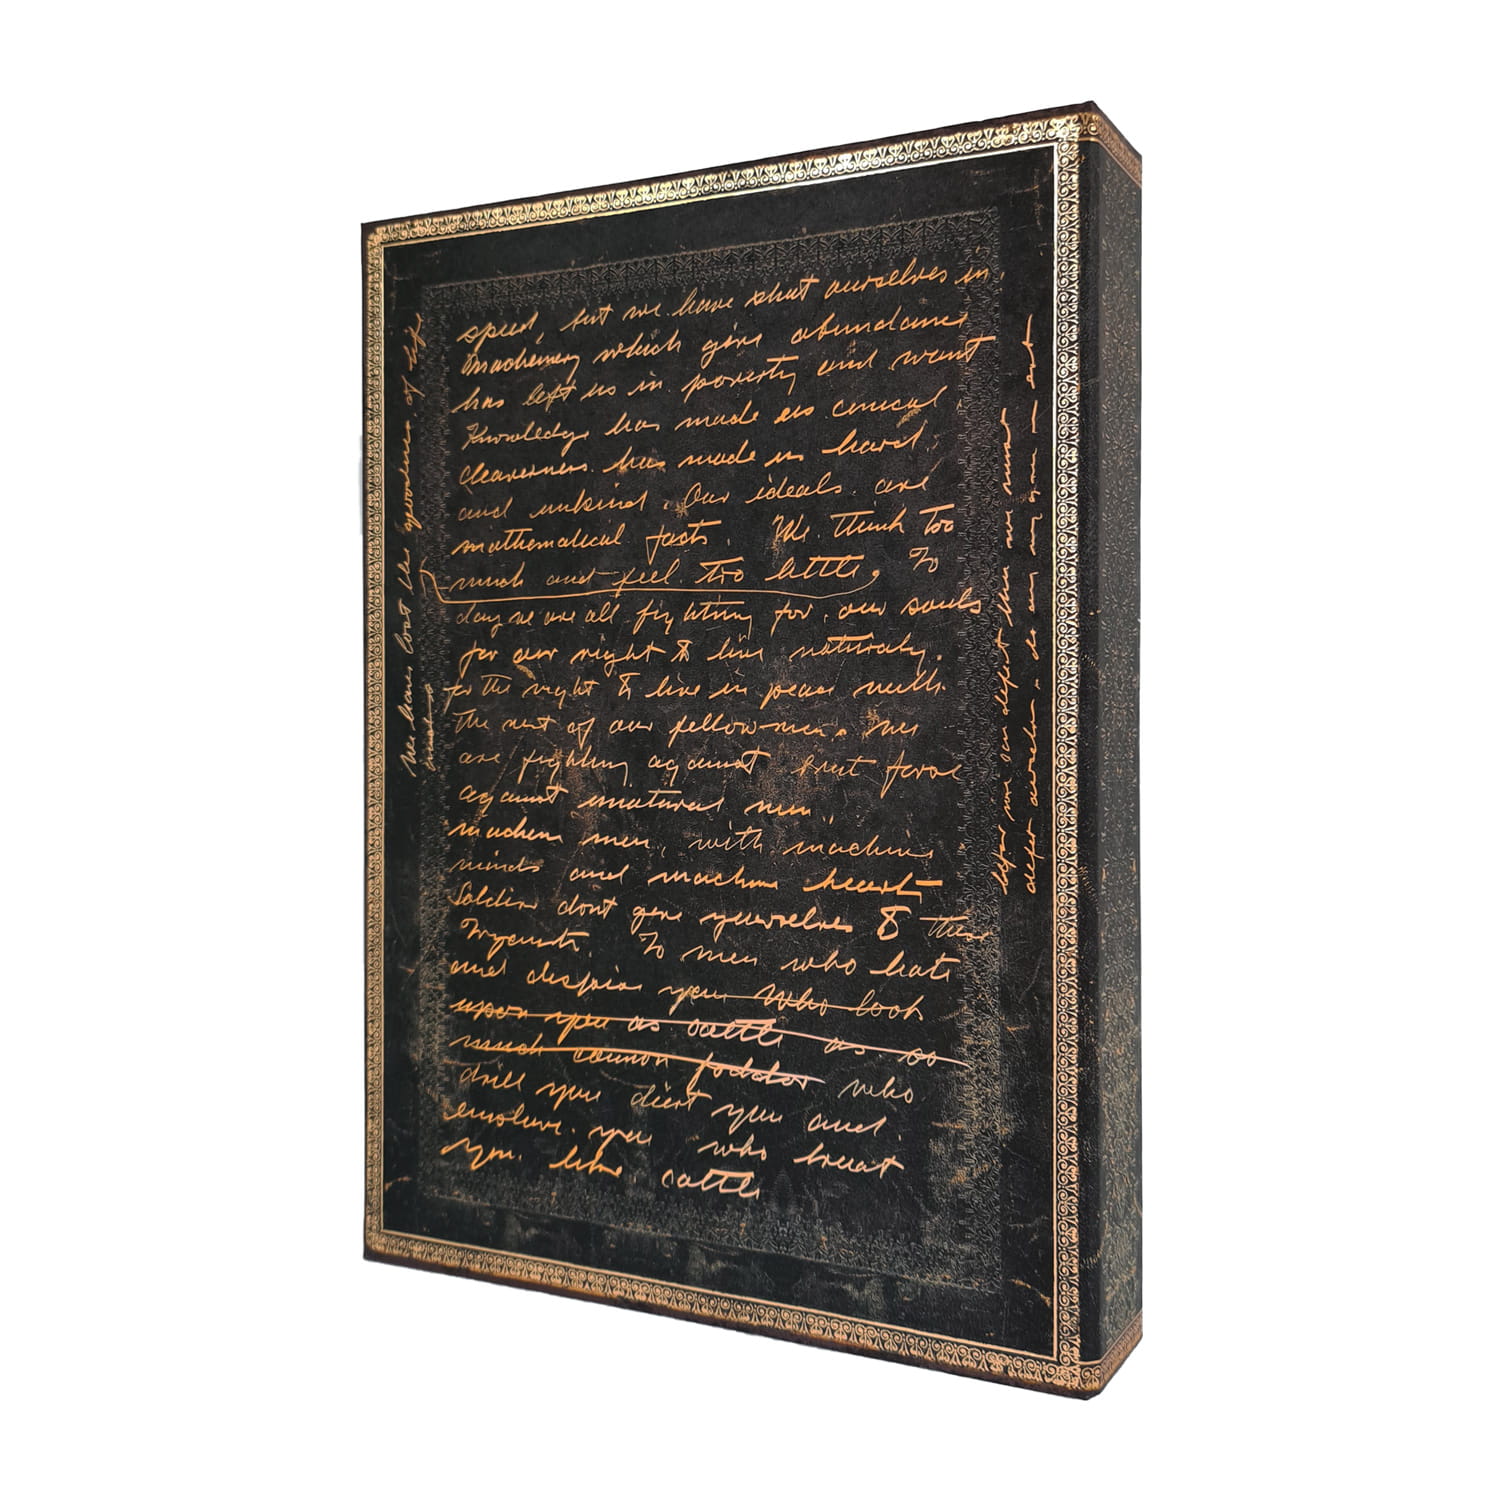 speed, but we have shut ourselves in
Machinery which give abundance
has left us in poverty and want
Knowledge has made us cinical
cleaverness has made us hard
and unkind. Our ideals are
mathematical facts. We think too
much and feel too little. To
day we are all fighting for our souls
for our right to live naturaly.
for the right to live in peace with
the rest of our fellowmen. We
are fighting against brut force
against unatural men
machine men, with machine
minds and machine hearts
Soldiers dont give yourselves to these
To men who hate
and despise you who look
upon you as cattle as so
much cannon fodder who
drill you diert you and
enslave you who treat
you like cattle
We have lost the of life